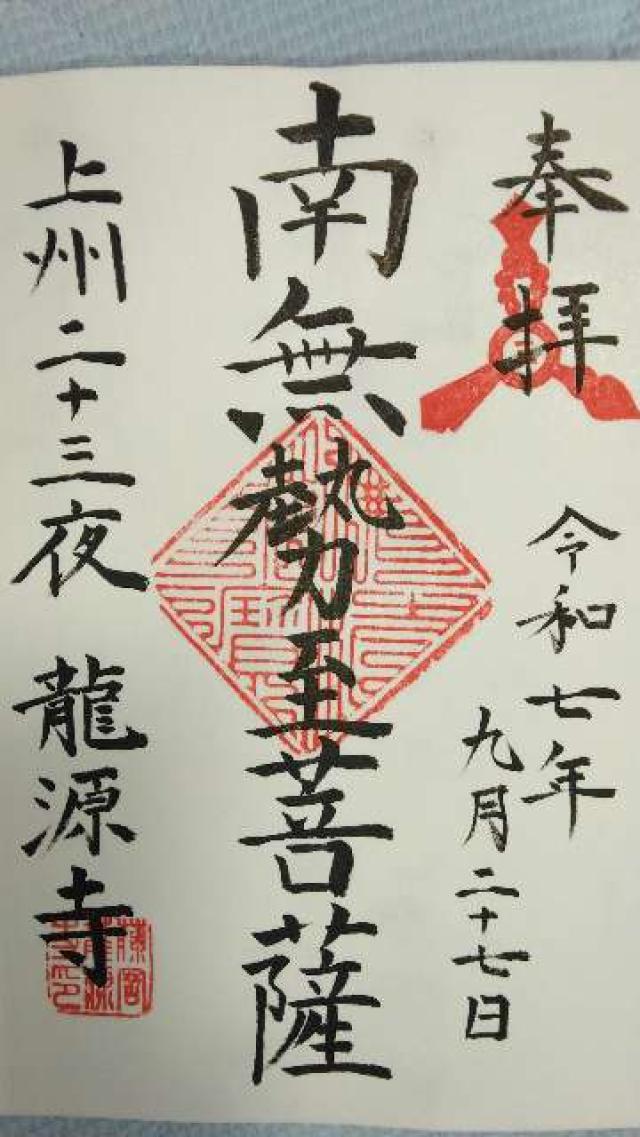 奉拝
令和七年
九月二十七日
南無勢至菩薩
上州二十三夜 龍源寺